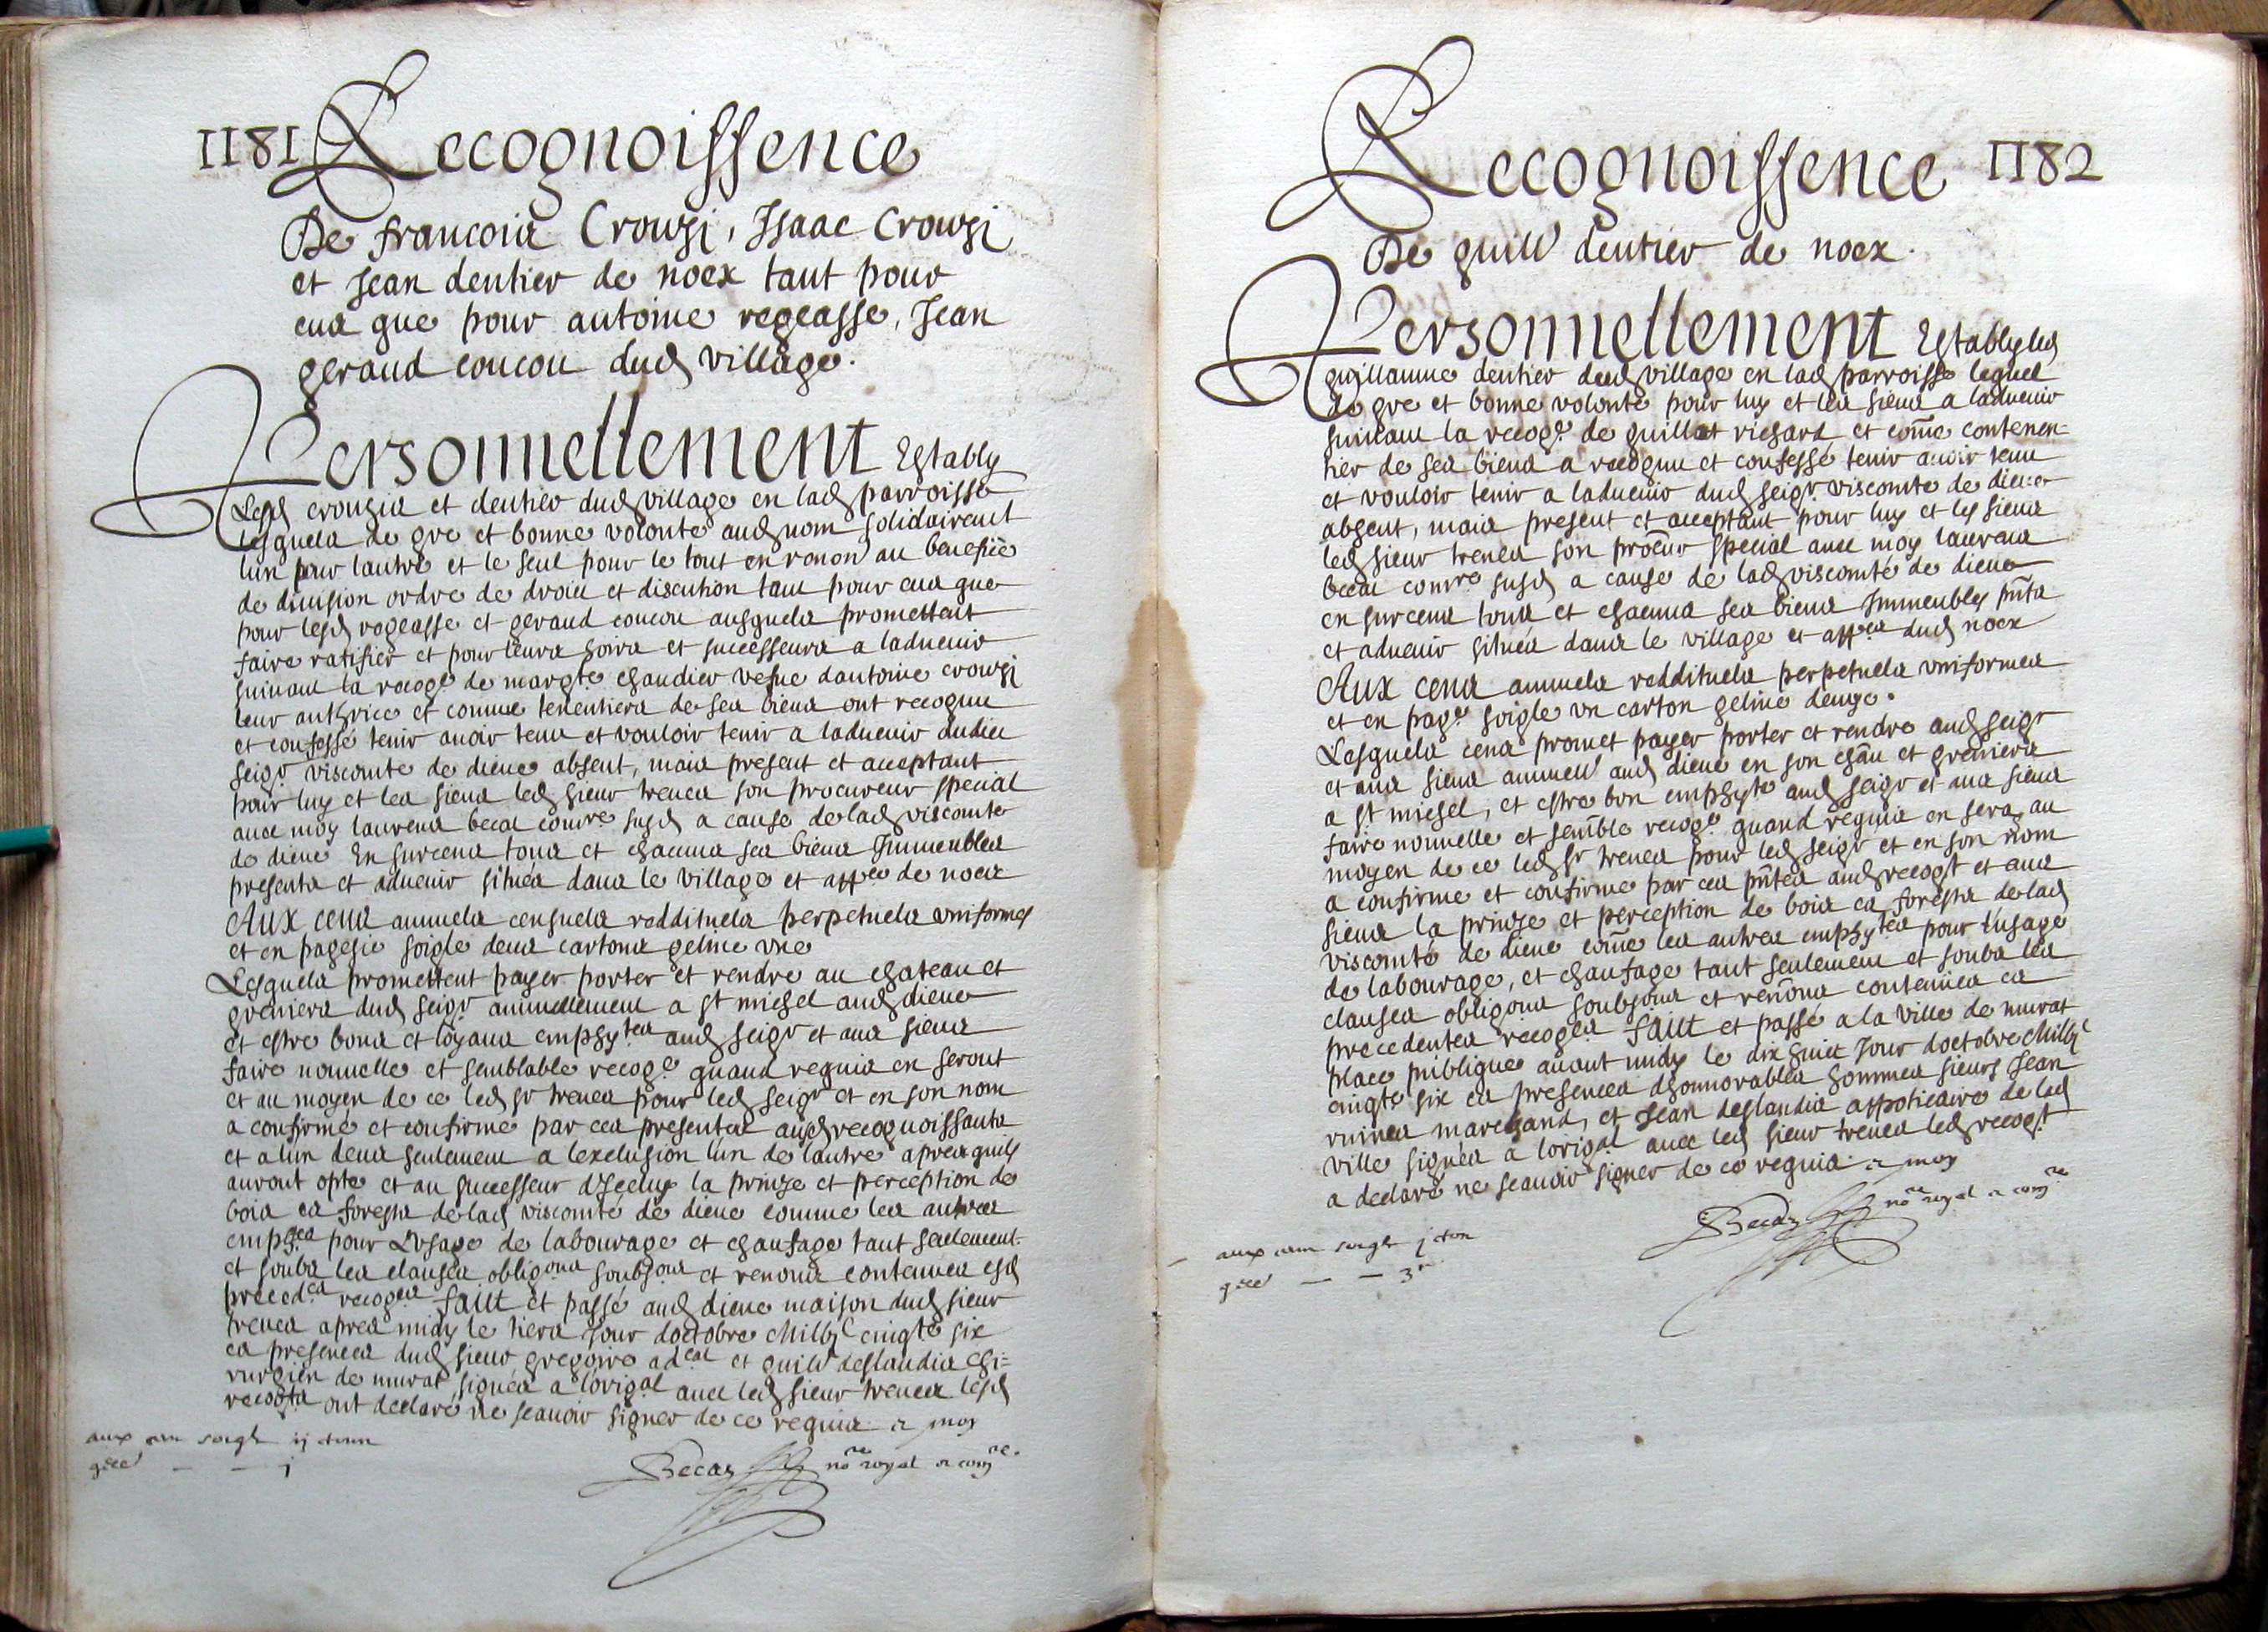 1181 Recognoissence
De francois Crouzi, Isaac Crouzi
et Jean dentier de noex tant pour
eux que pour antoine rogeasse, Jean
geraud coucou dud village.
Personnellement Establys
Lesd crouzis et dentier dud village en lad parroisse
lesquels de gre et bonne volonte aud nom solidairement
lun pour lautre et le seul pour le tout en renon au benefice
de diuision ordre de droict et discution tant pour eux que
pour lesd rogeasse et geraud coucou ausquels promettent
faire ratifier et pour leurs hoirs et successeurs a laduenir
suiuant la recoge de margte chandier vefue dantoine crouzi
leur authrice et comme tenentiers de ses biens ont recognu
et confessé tenir auoir tenu et vouloir tenir a laduenir dudict
seigr viscomte de diene absent, mais present et acceptant
pour luy et les siens led sieur treues son procureur special
auec moy laurens becat comre susd a cause de lad viscomte
de diene En surcens tous et chacuns ses biens Immeubles
presents et aduenir situés dans le village et appces de noex
Aux cens annuels censuels reddituels perpetuels uniformes
et en pagesie soigle deux cartons geline vne
Lesquels promettent payer porter et rendre au chateau et
greniers dud seigr annuellement a st michel aud diene
et estre bons et loyaux emphytes aud seigr et aux siens
faire nouuelle et semblable recoge quand requis en seront
et au moyen de ce led sr treues pour led seigr et en son nom
a confirmé et confirme par ces presentes ausd recognoissants
et a lun deux seulement a lexclusion lun de lautre apres quils
auront opté et au successeur dIceluy la prinze et perception de
bois es forestz de lad viscomté de diene comme les autres
emphes pour Lusage de labourage et chaufage tant seulement
et soubz les clauses obligons soubzons et renons contenues esd
precedes recoges faict et passé aud diene maison dud sieur
treues apres midy le tiers Jour doctobre Milbjc cinqte six
es presences dud sieur gregoire adcat et guilhe deslandis chi=
rurgien de murat, signés a lorigal auec led sieur treues lesd
recogts ont declaré ne scauoir signer de ce requis et moy
aux cens soigle ij ctons
gele — — j
Becat nore royal et comre
Recognoissence 1182
De guilhe dentier de noex.
Personnellement Estably led
guillaume dentier dud village en lad parroisse lequel
de gre et bonne volonte pour luy et les siens a laduenir
suiuant la recoge de guillot richard et come contenen-
tier de ses biens a recognu et confessé tenir auoir tenu
et vouloir tenir a laduenir dud seigr viscomte de diene
absent, mais present et acceptant pour luy et les siens
led sieur treues son procur special auec moy laurens
becat comre susd a cause de lad viscomté de diene
en surcens tous et chacuns ses biens Immeubles pnts
et aduenir situés dans le village et appces dud noex
Aux cens annuels reddituels perpetuels vniformes
et en page soigle vn carton geline demye.
Lesquels cens promet payer porter et rendre aud seigr
et aux siens annuell aud diene en son chau et greniers
a st michel, et estre bon emphyte aud seigr et aux siens
faire nouuelle et semble recoge quand requis en sera, au
moyen de ce led sr treues pour led seigr et en son nom
a confirmé et confirme par ces pntes aud recogt et aux
siens la prinze et perception de bois es forestz de lad
viscomté de diene come les autres emphytes pour Lusage
de labourage, et chaufage tant seulement et soubz les
clauses obligons soubzons et renons contenues es
precedentes recoges faict et passé a la ville de murat
place publique auant midy le dix huict Jour doctobre Milbjc
cinqte six es presences dhonnorables hommes sieurs Jean
ruines marchand, et Jean deslandis appoticaire de lad
ville signés a lorigal auec led sieur treues led recogt
a declaré ne scauoir signer de ce requis et moy
Becat nore royal et comre
aux cens soigle j cton
gele — — 3